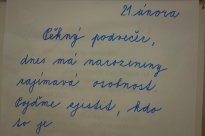 21. února
Pěkný podvečer,
dnes má narozeniny
zajímavá osobnost.
Pojďme zjistit, kdo
to je